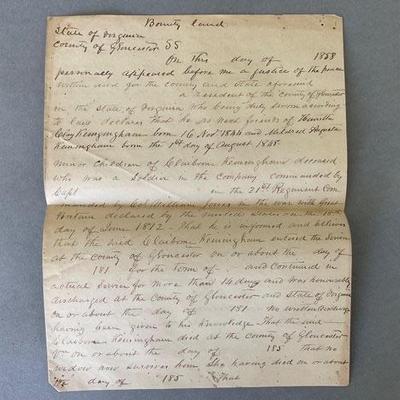 Bounty land
State of Virginia
County of Gloucester SS
On this day of 1858
personally appeared before me a justice of the peace
within and for the county and state aforesaid
a resident of the county of Gloucester
in the State of Virginia who being duly sworn according
to law declares that he is next friend of Hamilton
Clay Kemingham born 16 Nov 1844 and Mildred Augusta
Kemingham born the 1st day of August 1848
Minor children of Claiborne Kemingham deceased
who was a Soldier in the company commanded by
Capt in the 21st Regiment Com
manded by Col William Jones in the war with great
Britain declared by the United States on the 18th
day of June 1812. That he is informed and believes
that the said Claiborne Kemingham entered the Service
at the County of Gloucester on or about the day of
181 for the term of and continued in
actual service for more than 14 days and was honourably
discharged at the County of Gloucester and State of Virginia
on or about the day of 181 no written discharge
having been given to his knowledge That the said
Claiborne Kemingham died at the county of Gloucester
Va on or about the day of 185 that no
widow now survives him She having died on or about
the day of 185 That